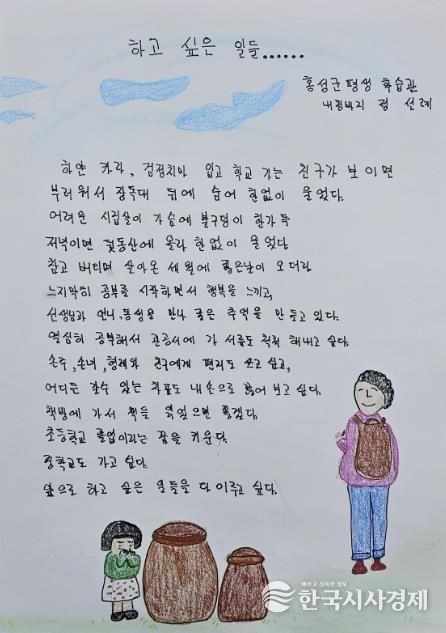 하고 싶은 일들......
홍성군 평생 학습관
내림바지 정 선례
하얀 카라, 검정치마 입고 학교 가는 친구가 보이면
부러워서 장독대 뒤에 숨어 한없이 울었다.
어려운 시집살이 가슴에 불구덩이 한가득
저녁이면 뒷동산에 올라 한없이 울었다
참고 버티며 살아온 세월에 좋은날이 오더라
느지막히 공부를 시작하면서 행복을 느끼고,
선생님과 언니, 동생을 만나 좋은 추억을 만들고 있다.
열심히 공부해서 관공서에 가 서류도 척척 해내고 싶다.
손주, 손녀, 형제와 친구에게 편지도 쓰고 싶고,
어디든 갈수 있는 차표도 내손으로 끊어 보고 싶다.
책방에 가서 책을 읽었으면 좋겠다.
초등학교 졸업이라는 꿈을 키운다.
중학교도 가고 싶다.
앞으로 하고 싶은 일들을 다 이루고 싶다.
빠르고 신속한 정보
한국시사경제